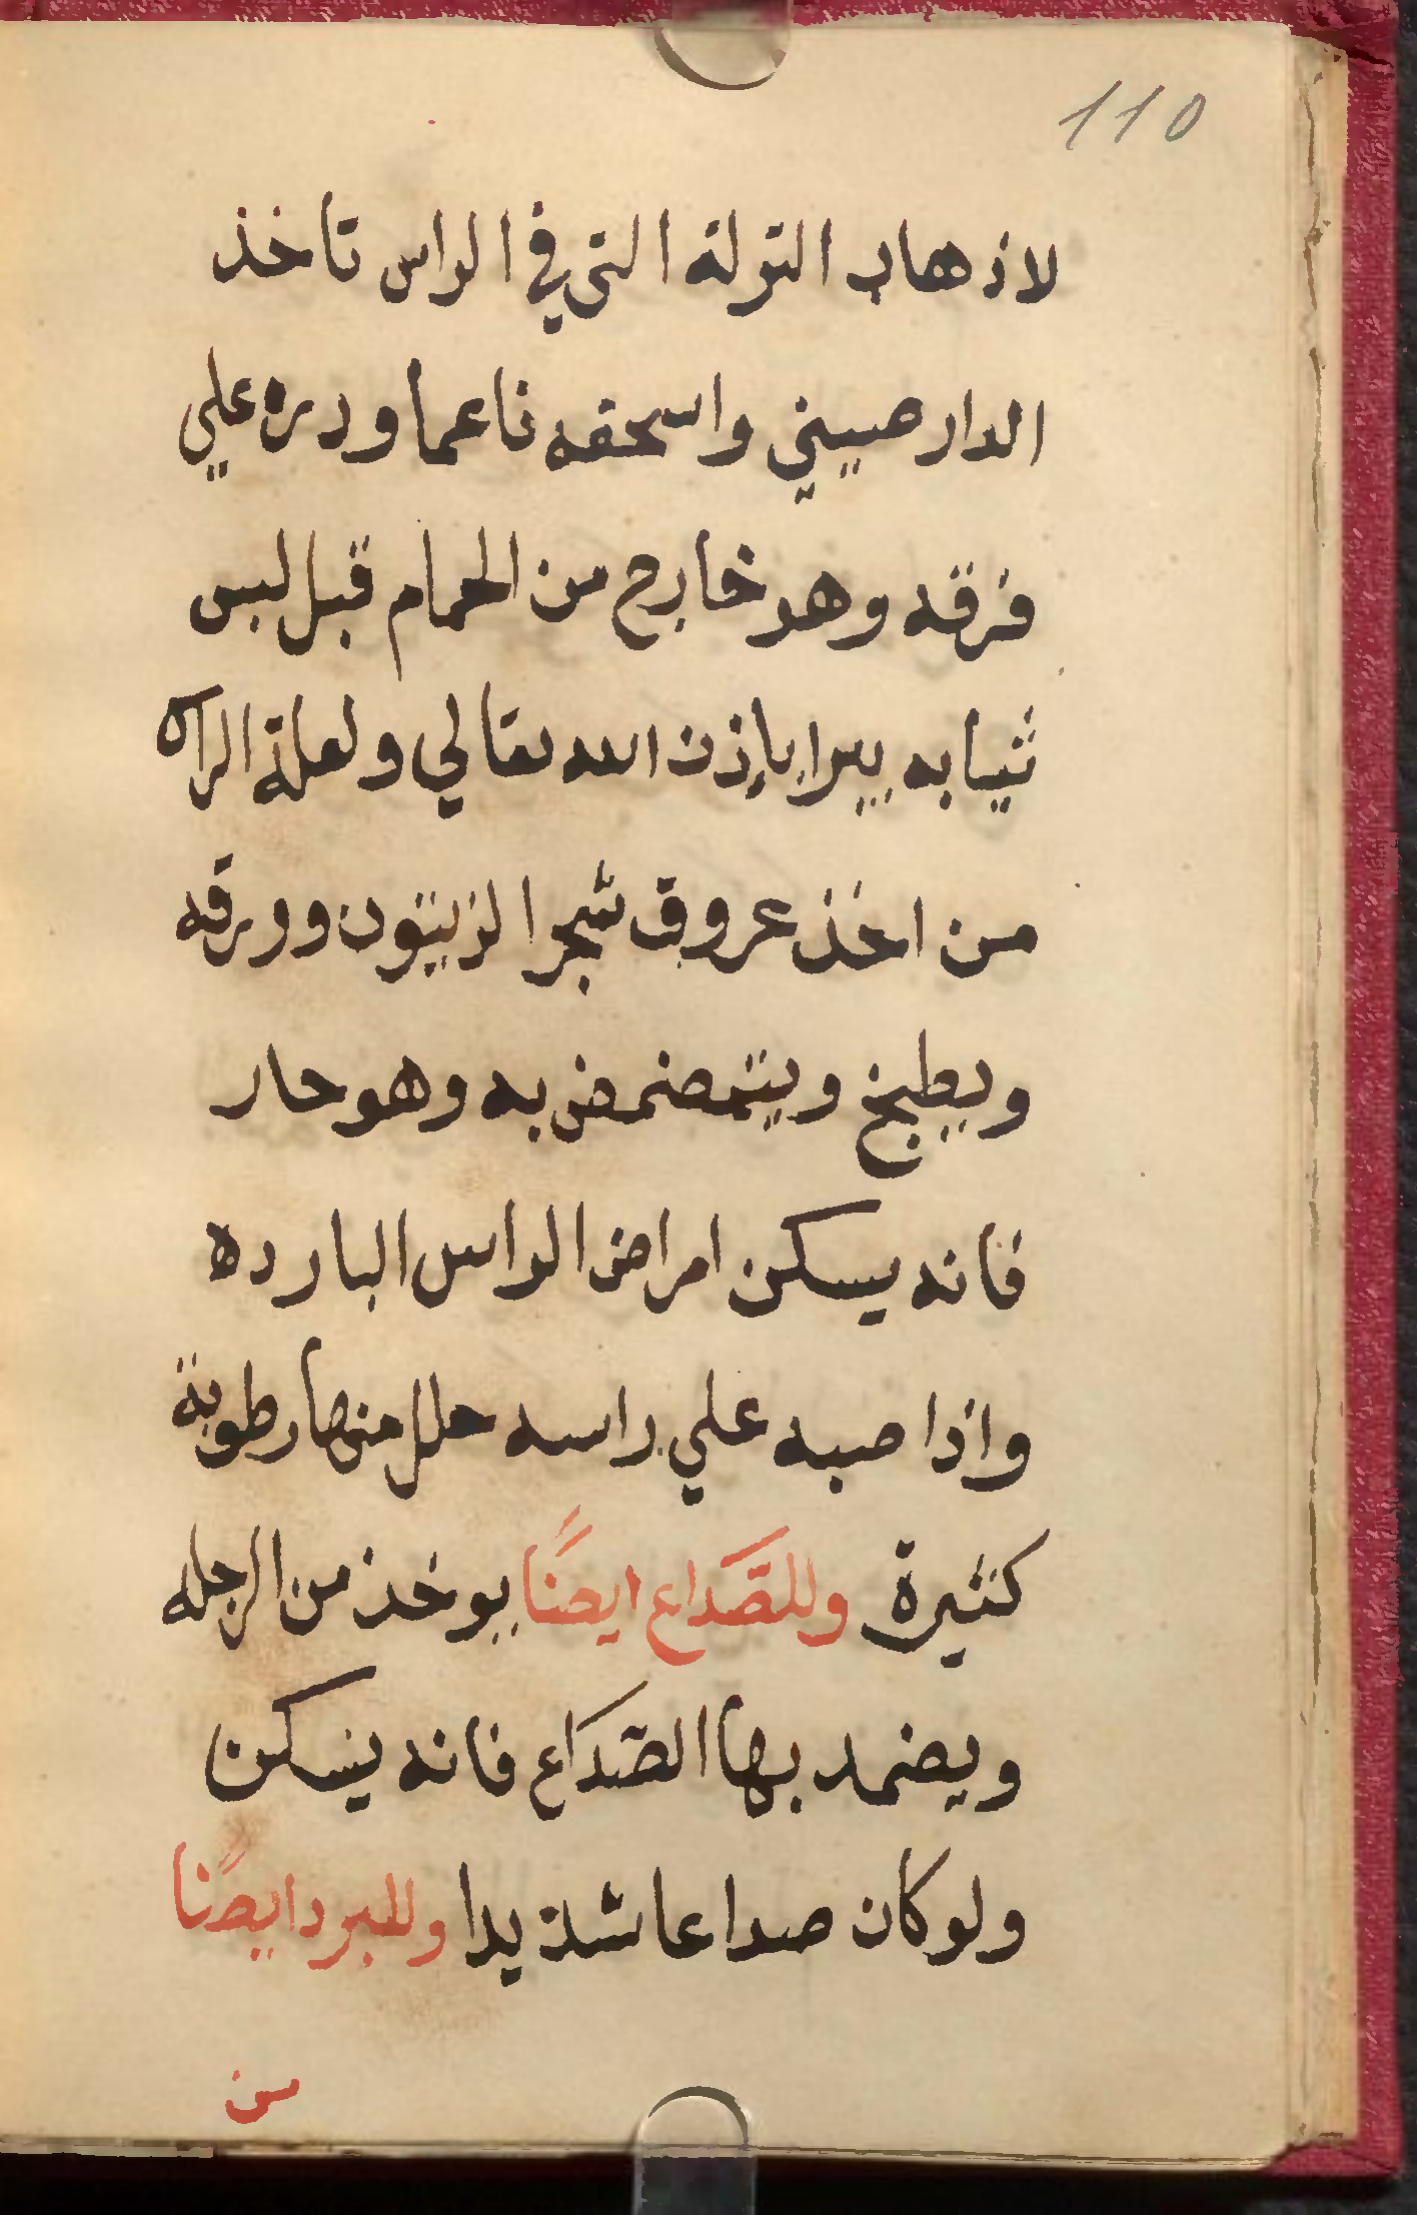 110
لاذهاب التولة التي في الراس تاخذ
الدار صيني واسحقه ناعما ودره علي
فرقه وهو خارج من الحمام قبل لبس
ثيابه يبرا بإذن الله تعالي ولعلة الراه
من اخذ عروق شجر الزيتون وورقه
ويطبخ ويتمضمض به وهو حار
فانه يسكن امراض الراس البارده
واذا صبه علي راسه حلل منها رطوبة
كثيرة وللصّداع ايضًا يوخذ من الرجله
ويضمد بها الصّداع فانه يسكن
ولو كان صداعا شديدا وللبرد ايضًا
من